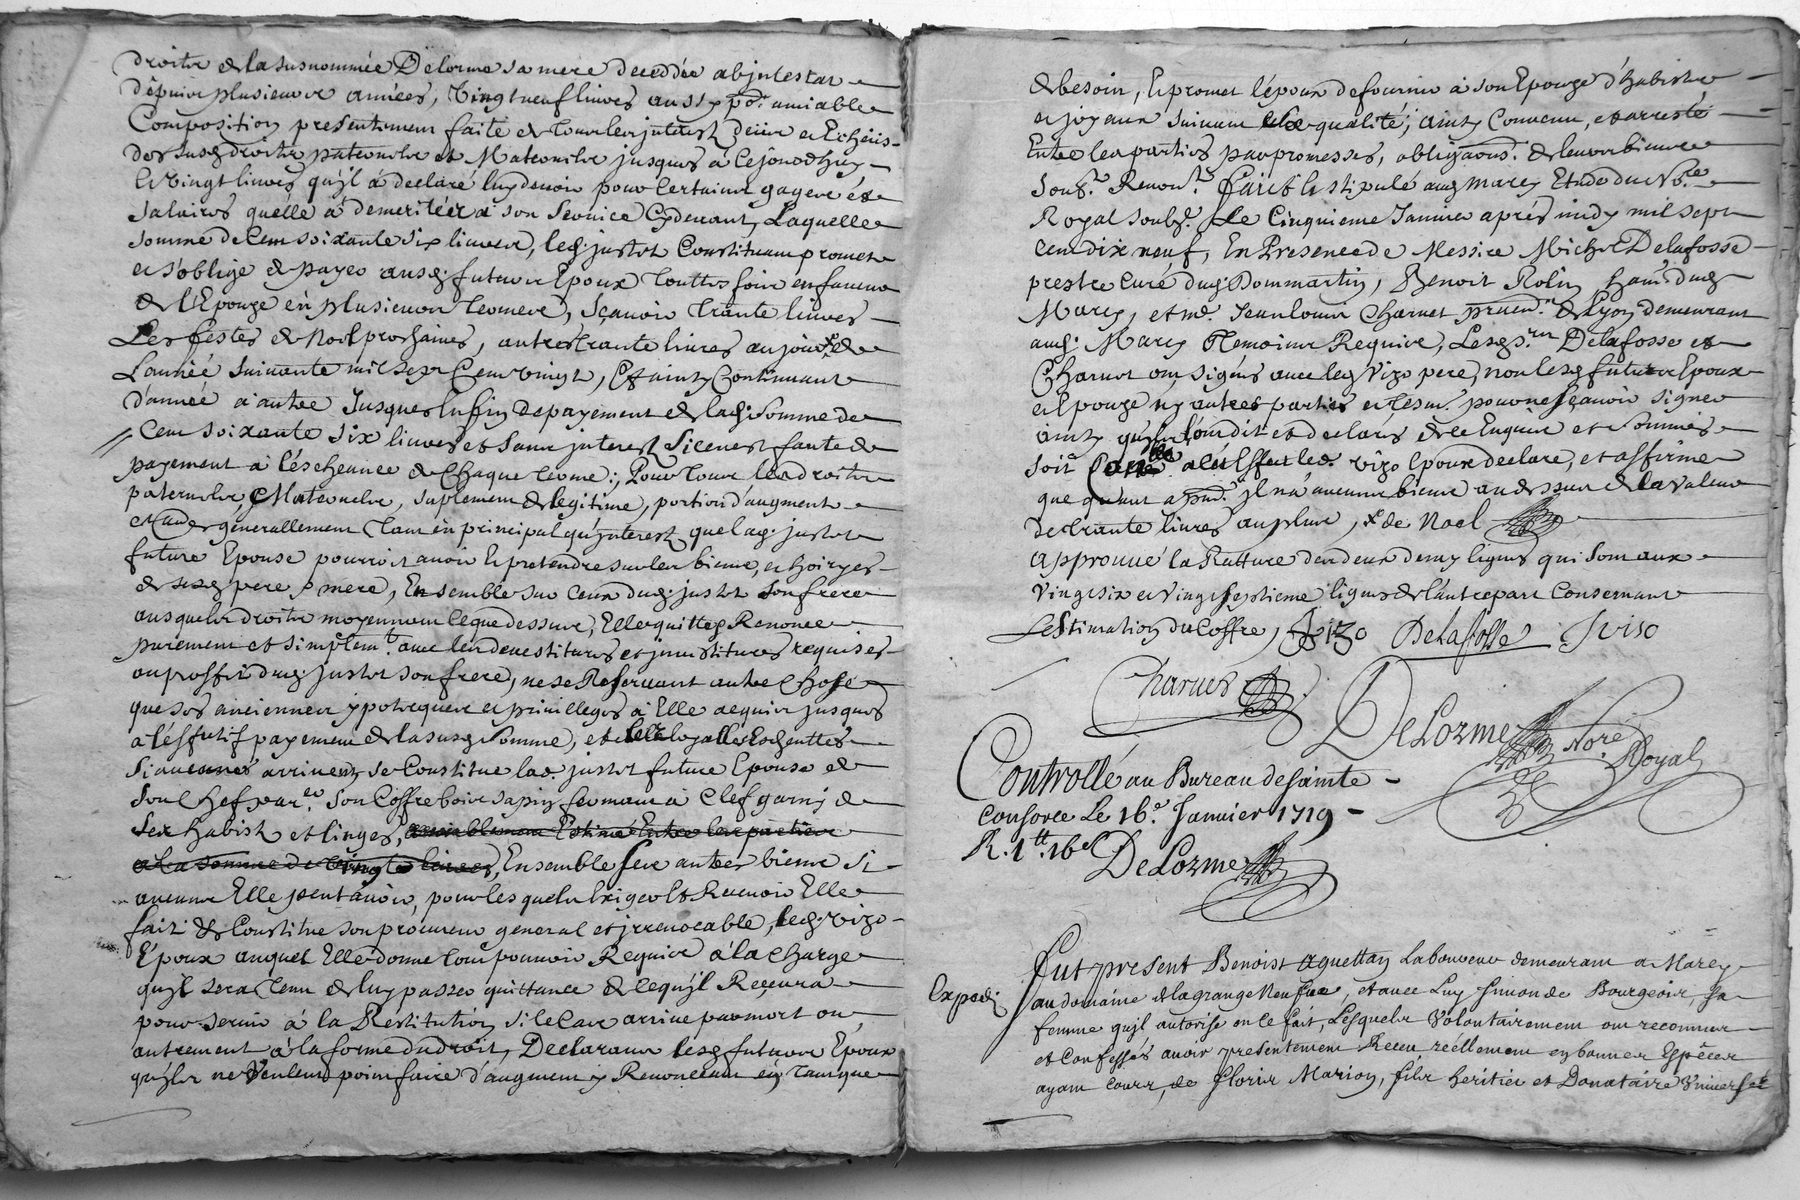 droitz de la susnommée Delorme sa mere decedée abjntestat
dêpuis plusieurs années, Vingt neuf livres aussy po.r amiable
Composition presentement faite de tous les jnterest deüs et Echeüs
des susd droitz paternels et Maternels jusques à cejourdhuy
et Vingt livres qu'jl à declaré luy devoir pour Certains gages et
Salaires quélle à demeritéez a son Service Cydevant, Laquelle
somme de Cent soixante six livres, led. justet Constituant promet
et s'oblige de payer ausd. futurs Epoux touttes fois en faveur
de l'Epouze en plusieurs termes, sçavoir trante livres
Les festes de Noel prochaines, autres trante livres au jour x de
L'année suivante mil sept Cent vingt, Et ainsy Continuant
d'année a autre Jusques en fin de payement de lad. somme de
Cent soixante six livres et sans jnterest si ce nest faute de
payement à l'éscheance de Chaque terme; Pour tous les droitz
paternels, et Maternels, suplement de legitime, portion d'augment
et aues generallement tant en principal qu'jnterest que lad. justet
future Epouse pourroit avoir et pretendre sur les biens, et hoiryes
de sesd pere et mere, Ensemble sur ceux dud. justet son frere
ausquels droitz moyennant ceque dessus, Elle quitte et Renonce
purement et simplem.t avec les devestitures et jnvestitures requises
au proffit dud. justet son frere, ne se Reservant autre Chose
que ses anciennes ypoteques et privilleges à Elle acquis jusques
à l'éffectif payement de la susd somme, et de loyalles Escheuttes
si aucunes arrivent, se Constitue lad. justet future Epouse de
son Chef par.er son Coffre bois sapin fermant à Clef garny de
ses habist et linges, amiablement Estimé Entre les parties
a la somme de vingt livres, Ensemble ses autres biens si
aucuns Elle peut avoir, pour lesquels Exiger et Recevoir Elle
fait et Constitue son procureur general et jrrevocable, led. vizo
Epoux auquel Elle donne tout pouvoir Requis à la Charge
qu'jl sera tenu de luy passer quittance de ce qu'jl Recevra
pour servir à la Restitution si le Cas arrive par mort ou
autrement à la forme du droit, Declarant lesd futurs Epoux
qu'jls ne Veulent point faire d'augment y Renonceant en tant que
de besoin, Et promet l'époux de fournir à son Epouze d'habistz
et joyaux suivant sa qualité; ainsy Convenu, et arresté
Entre les parties par promesses, obligaons. de leurs biens
Soub.s Renon.s fait et stipulé aud marcy Etude du No.re
Royal soub.né Le Cinquieme Janvier aprés midy mil sept
cent dix neuf, En Presence de Messire Michel Delafosse
prestre Curé dud. Dommartin, Benoit Rolin hant. dud
Marcy, et me. Jean louis Charvet praticn. de Lyon demeurant
aud. Marcy temoins Requis, Lesd s.rs Delafosse et
Charvet ont signés avec led Vizo pere, non lesd futurs Epoux
et Epouze ny autres parties et tesm. pour ne sçavoir signer
ainsy qu'jls l'ont dit et declarés de ce Enquis et sommés
soit a cet Effet led. vizo Epoux declare, et affirme
que quant a pnt. jl n'a aucuns biens au dessus de la valeur
de trante livres au plus, x de Noel
approuvé la Ratture des deux demy lignes qui sont aux
Vingt six et vingt septieme lignes de l'autre part Consernant
L'estimation du Coffre, J vizo DeLafosse J viso
Charvet
DeLorme Nore. Royal
Controllé au Bureau de sainte
consorce Le 16.e Janvier 1719
R. 1tt. 16s DeLorme
Expedi
fut present Benoist Aguettan Laboureur demeurant a Marcy
au domaine de la grange Neufve, et avec Luy Simonde Bourgeois, sa
femme qu'jl autorise en ce fait, Lesquels Volontairement ont reconnus
et Confessés avoir presentement Receu réellement en bonnes Espêces
ayant Cours, de fleury Marion, fils heritier et Donataire Universel